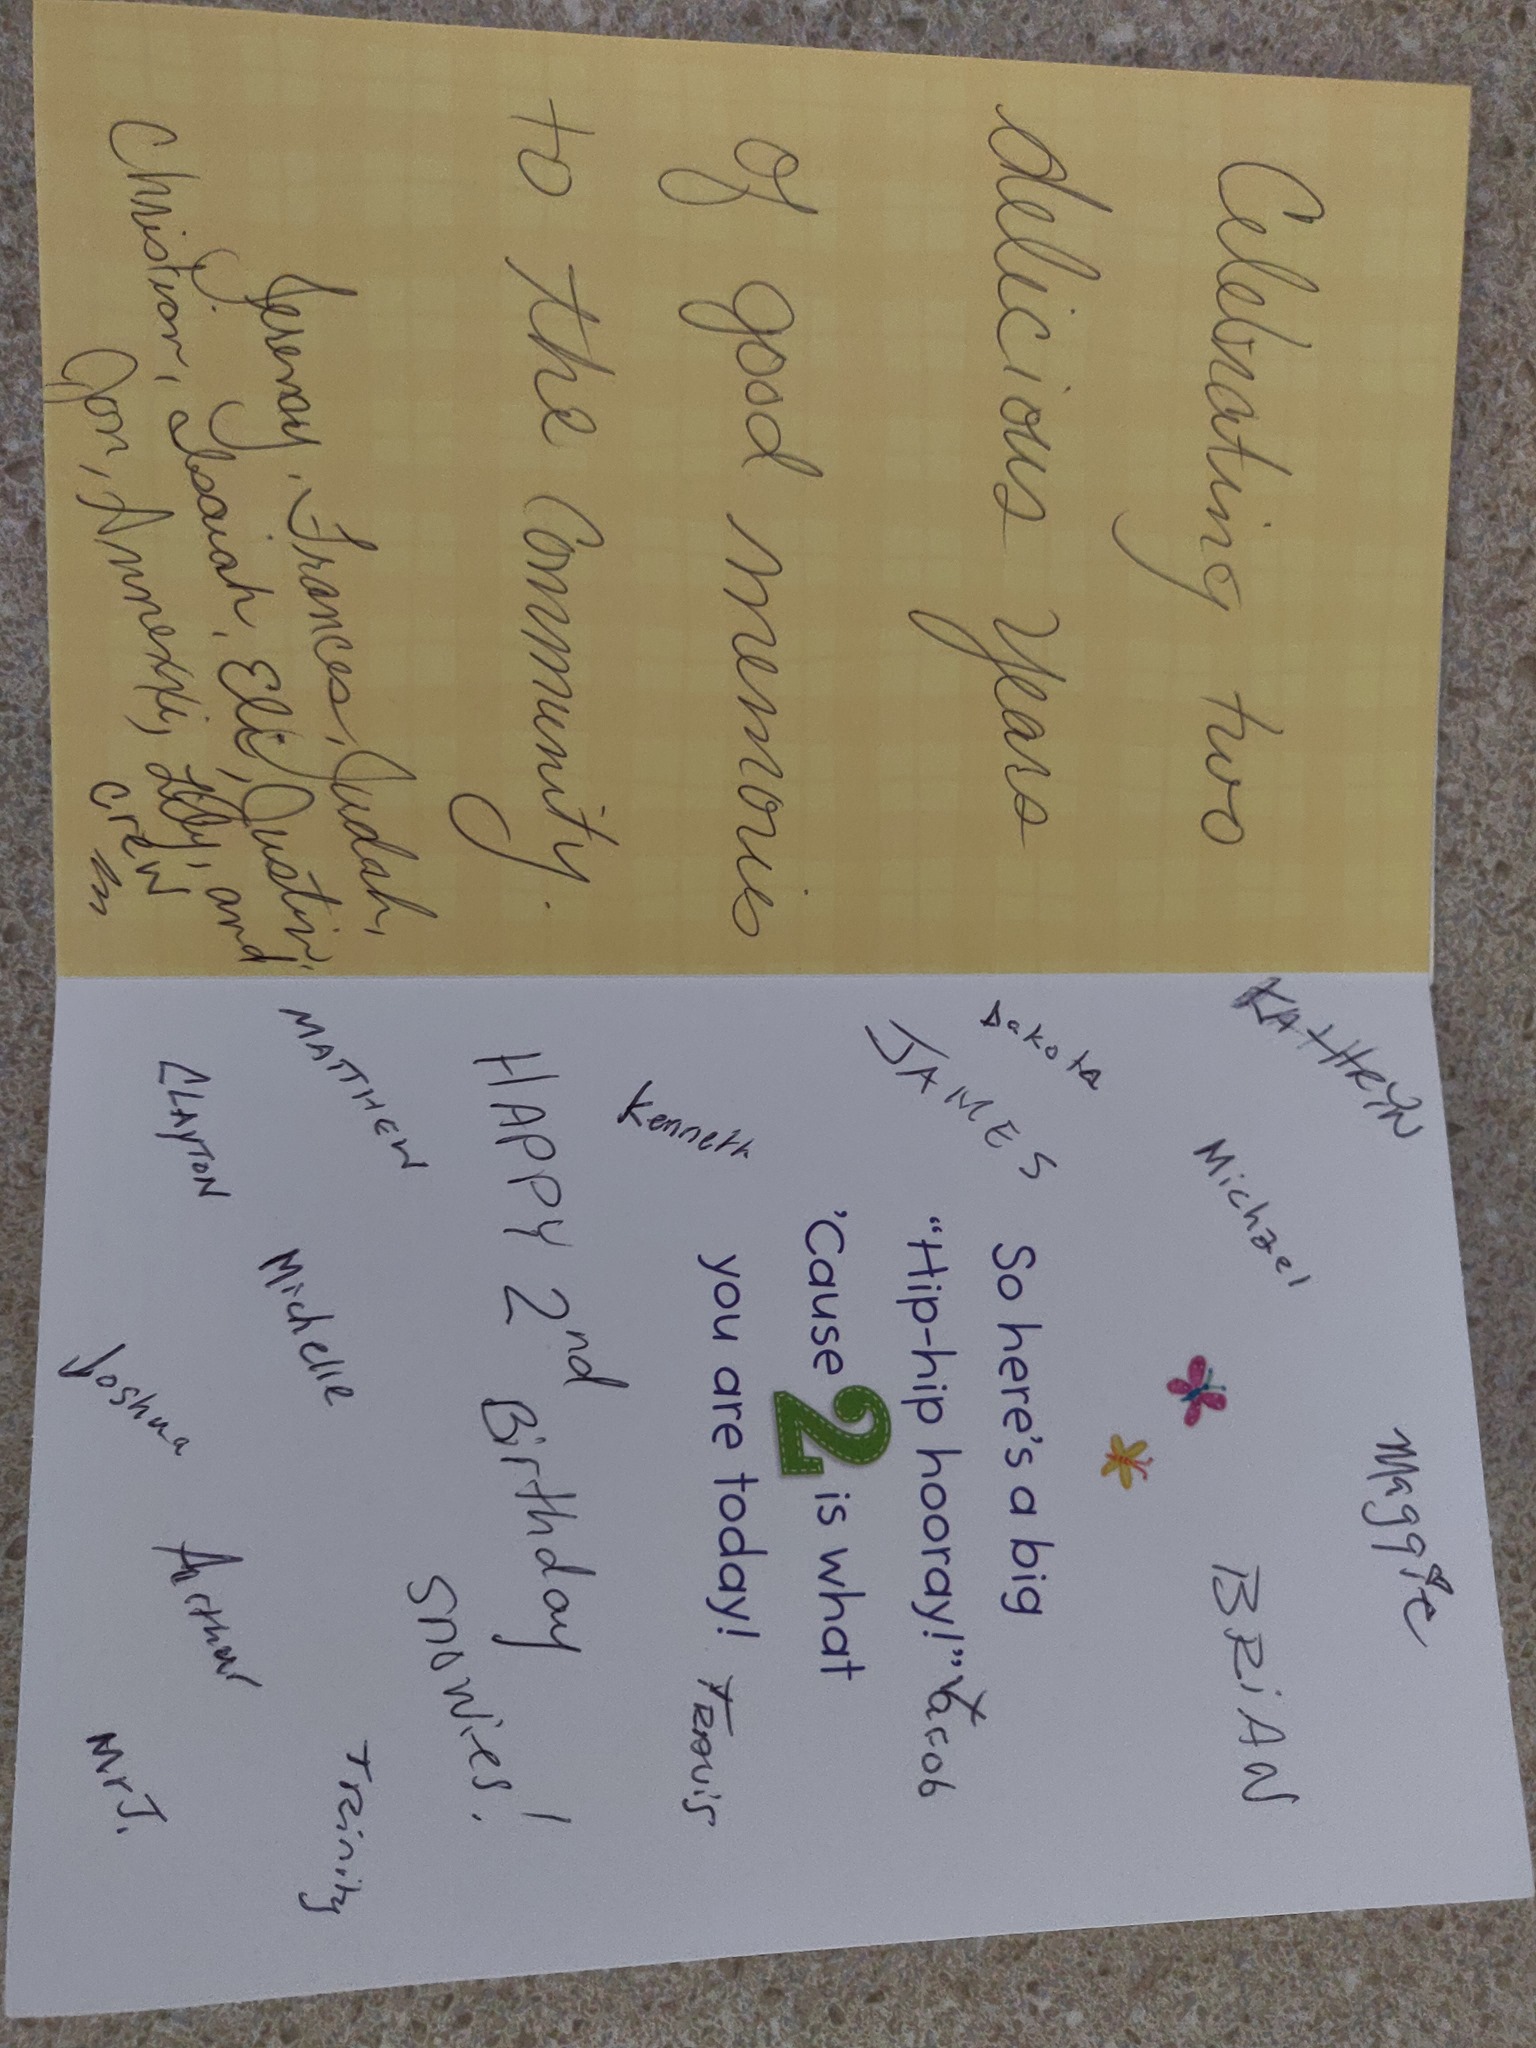 Celebrating two
delicious years
of good memories
to the community.
Jeremy, Frances, Judah,
Y. Isaiah, Eli, Justin,
Christian,
Jon, Annexxi, Libby, and
crew
Maggie
KATHRYN
Michael
BRIAN
Dakota
JAMES
So here's a big
"Hip-hip hooray!" Yacob
'Cause 2 is what
you are today! Travis
Kenneth
HAPPY 2nd Birthday
Snowies!
MATTHEW
Michelle
Trinity
CLAYTON
Joshua
Arthur
Mr J.